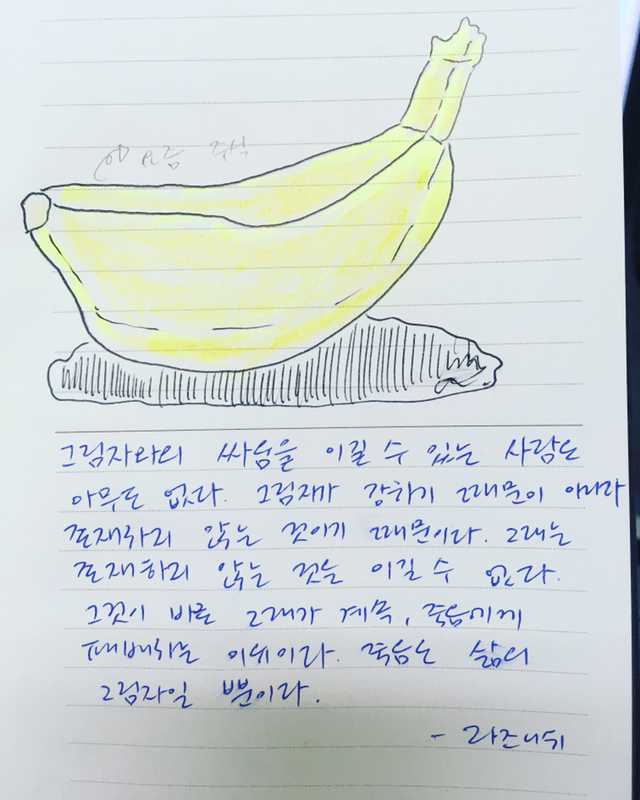 요즘 주식
그림자와의 싸움을 이길 수 있는 사람은
아무도 없다. 그림자가 강하기 때문이 아니라
존재하지 않는 것이기 때문이다. 그대는
존재하지 않는 것는 이길 수 없다.
그것이 바로 그대가 계속, 죽음에게
패배하는 이유이다. 죽음은 삶의
그림자일 뿐이다.
- 라즈니쉬